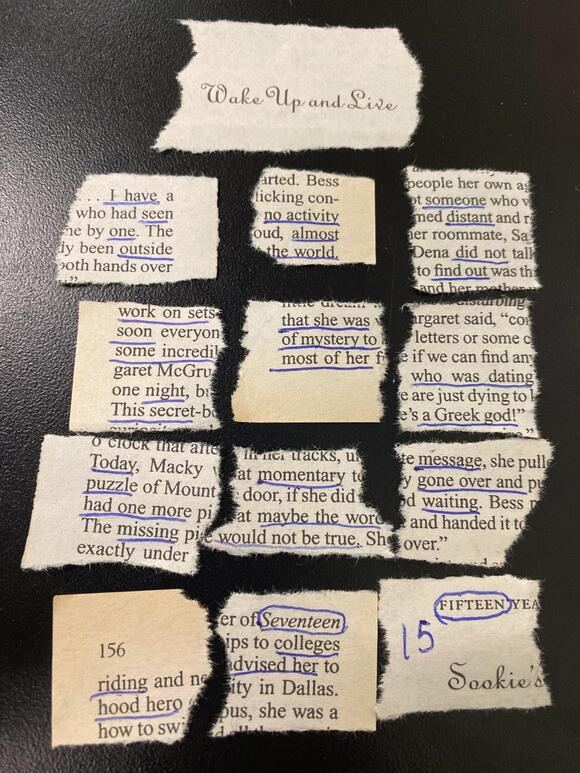 Wake Up and Live
. . . I have a
who had seen
ne by one. The
ly been outside
both hands over
."
arted. Bess
licking con-
no activity
oud, almost
the world.
people her own ag
ot someone who
med distant and r
er roommate, Sa
Dena did not talk
to find out was th
and her mother
work on sets
soon everyon
some incredi
garet McGru
one night, b
This secret-b
that she was
of mystery to
most of her f
disturbing
argaret said, "co
letters or some c
e if we can find any
who was dating
e are just dying to
e's a Greek god!"
"
o'clock that afte
Today, Macky
puzzle of Mount
had one more pi
The missing pi
exactly under
in her tracks, u
at momentary t
door, if she did
at maybe the word
would not be true. Sh
te message, she pull
y gone over and pu
d waiting. Bess
and handed it to
over."
156
riding and ne
hood hero
how to swi
er of Seventeen
ips to colleges
advised her to
ity in Dallas.
pus, she was a
FIFTEEN YEA
15
Sookie's